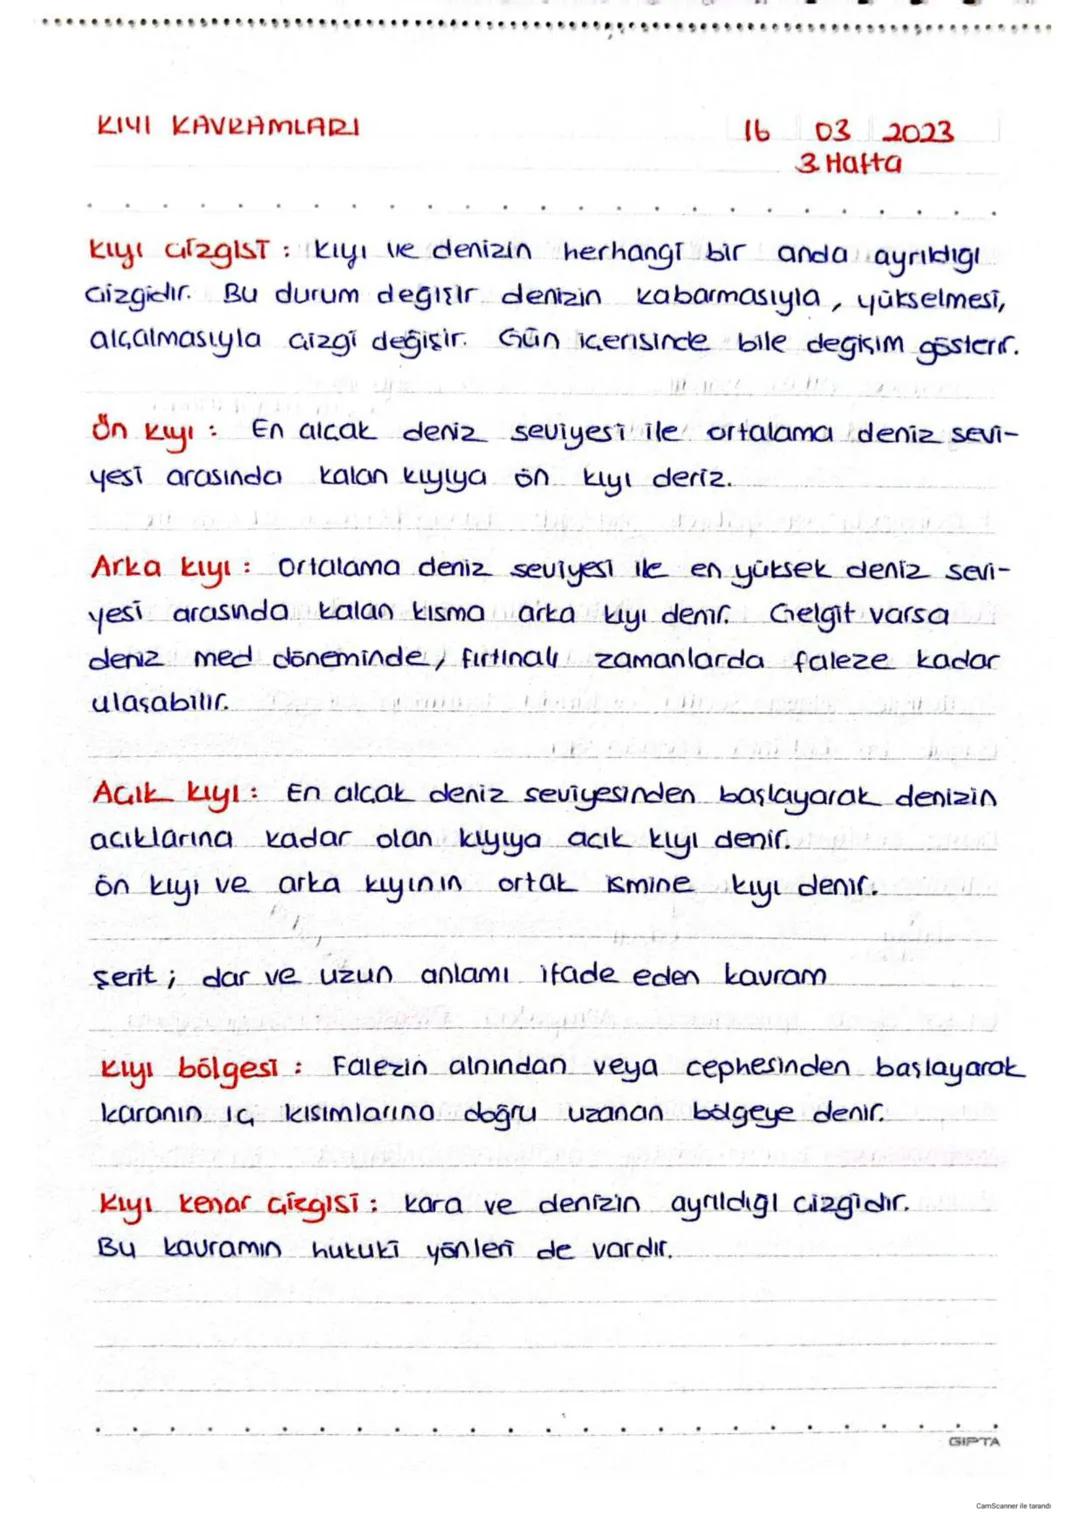 KIYI KAVRAMLARI
16 03 2023
3. Hafta
Kıyı Çizgisi : Kıyı ve denizin herhangi bir anda ayrıldığı
çizgidir. Bu durum değişir denizin kabarmasıyla, yükselmesi,
alçalmasıyla çizgi değişir. Gün içerisinde bile değişim gösterir.
Ön Kıyı : En alçak deniz seviyesi ile ortalama deniz sevi-
yesi arasında kalan kıyıya ön kıyı deriz.
Arka kıyı : Ortalama deniz seviyesi ile en yüksek deniz sevi-
yesi arasında kalan kısma arka kıyı denir. Gelgit varsa
deniz med döneminde, fırtınalı zamanlarda faleze kadar
ulaşabilir.
Açık kıyı : En alçak deniz seviyesinden başlayarak denizin
açıklarına kadar olan kıyıya açık kıyı denir.
Ön kıyı ve arka kıyının ortak ismine kıyı denir.
Şerit ; dar ve uzun anlamı ifade eden kavram
Kıyı bölgesi : Falezin alnından veya cephesinden başlayarak
karanın iç kısımlarına doğru uzanan bölgeye denir.
Kıyı kenar Çizgisi : Kara ve denizin ayrıldığı çizgidir.
Bu kavramın hukuki yönleri de vardır.
GIPTA
CamScanner ile tarandı